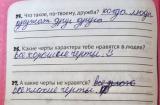 35. Что такое, по-твоему, дружба? когда люди
дружат друг с другом
36. Какие черты характера тебе нравятся в людях?
все хорошие черты.
37. А какие не нравятся?
все плохие черты.